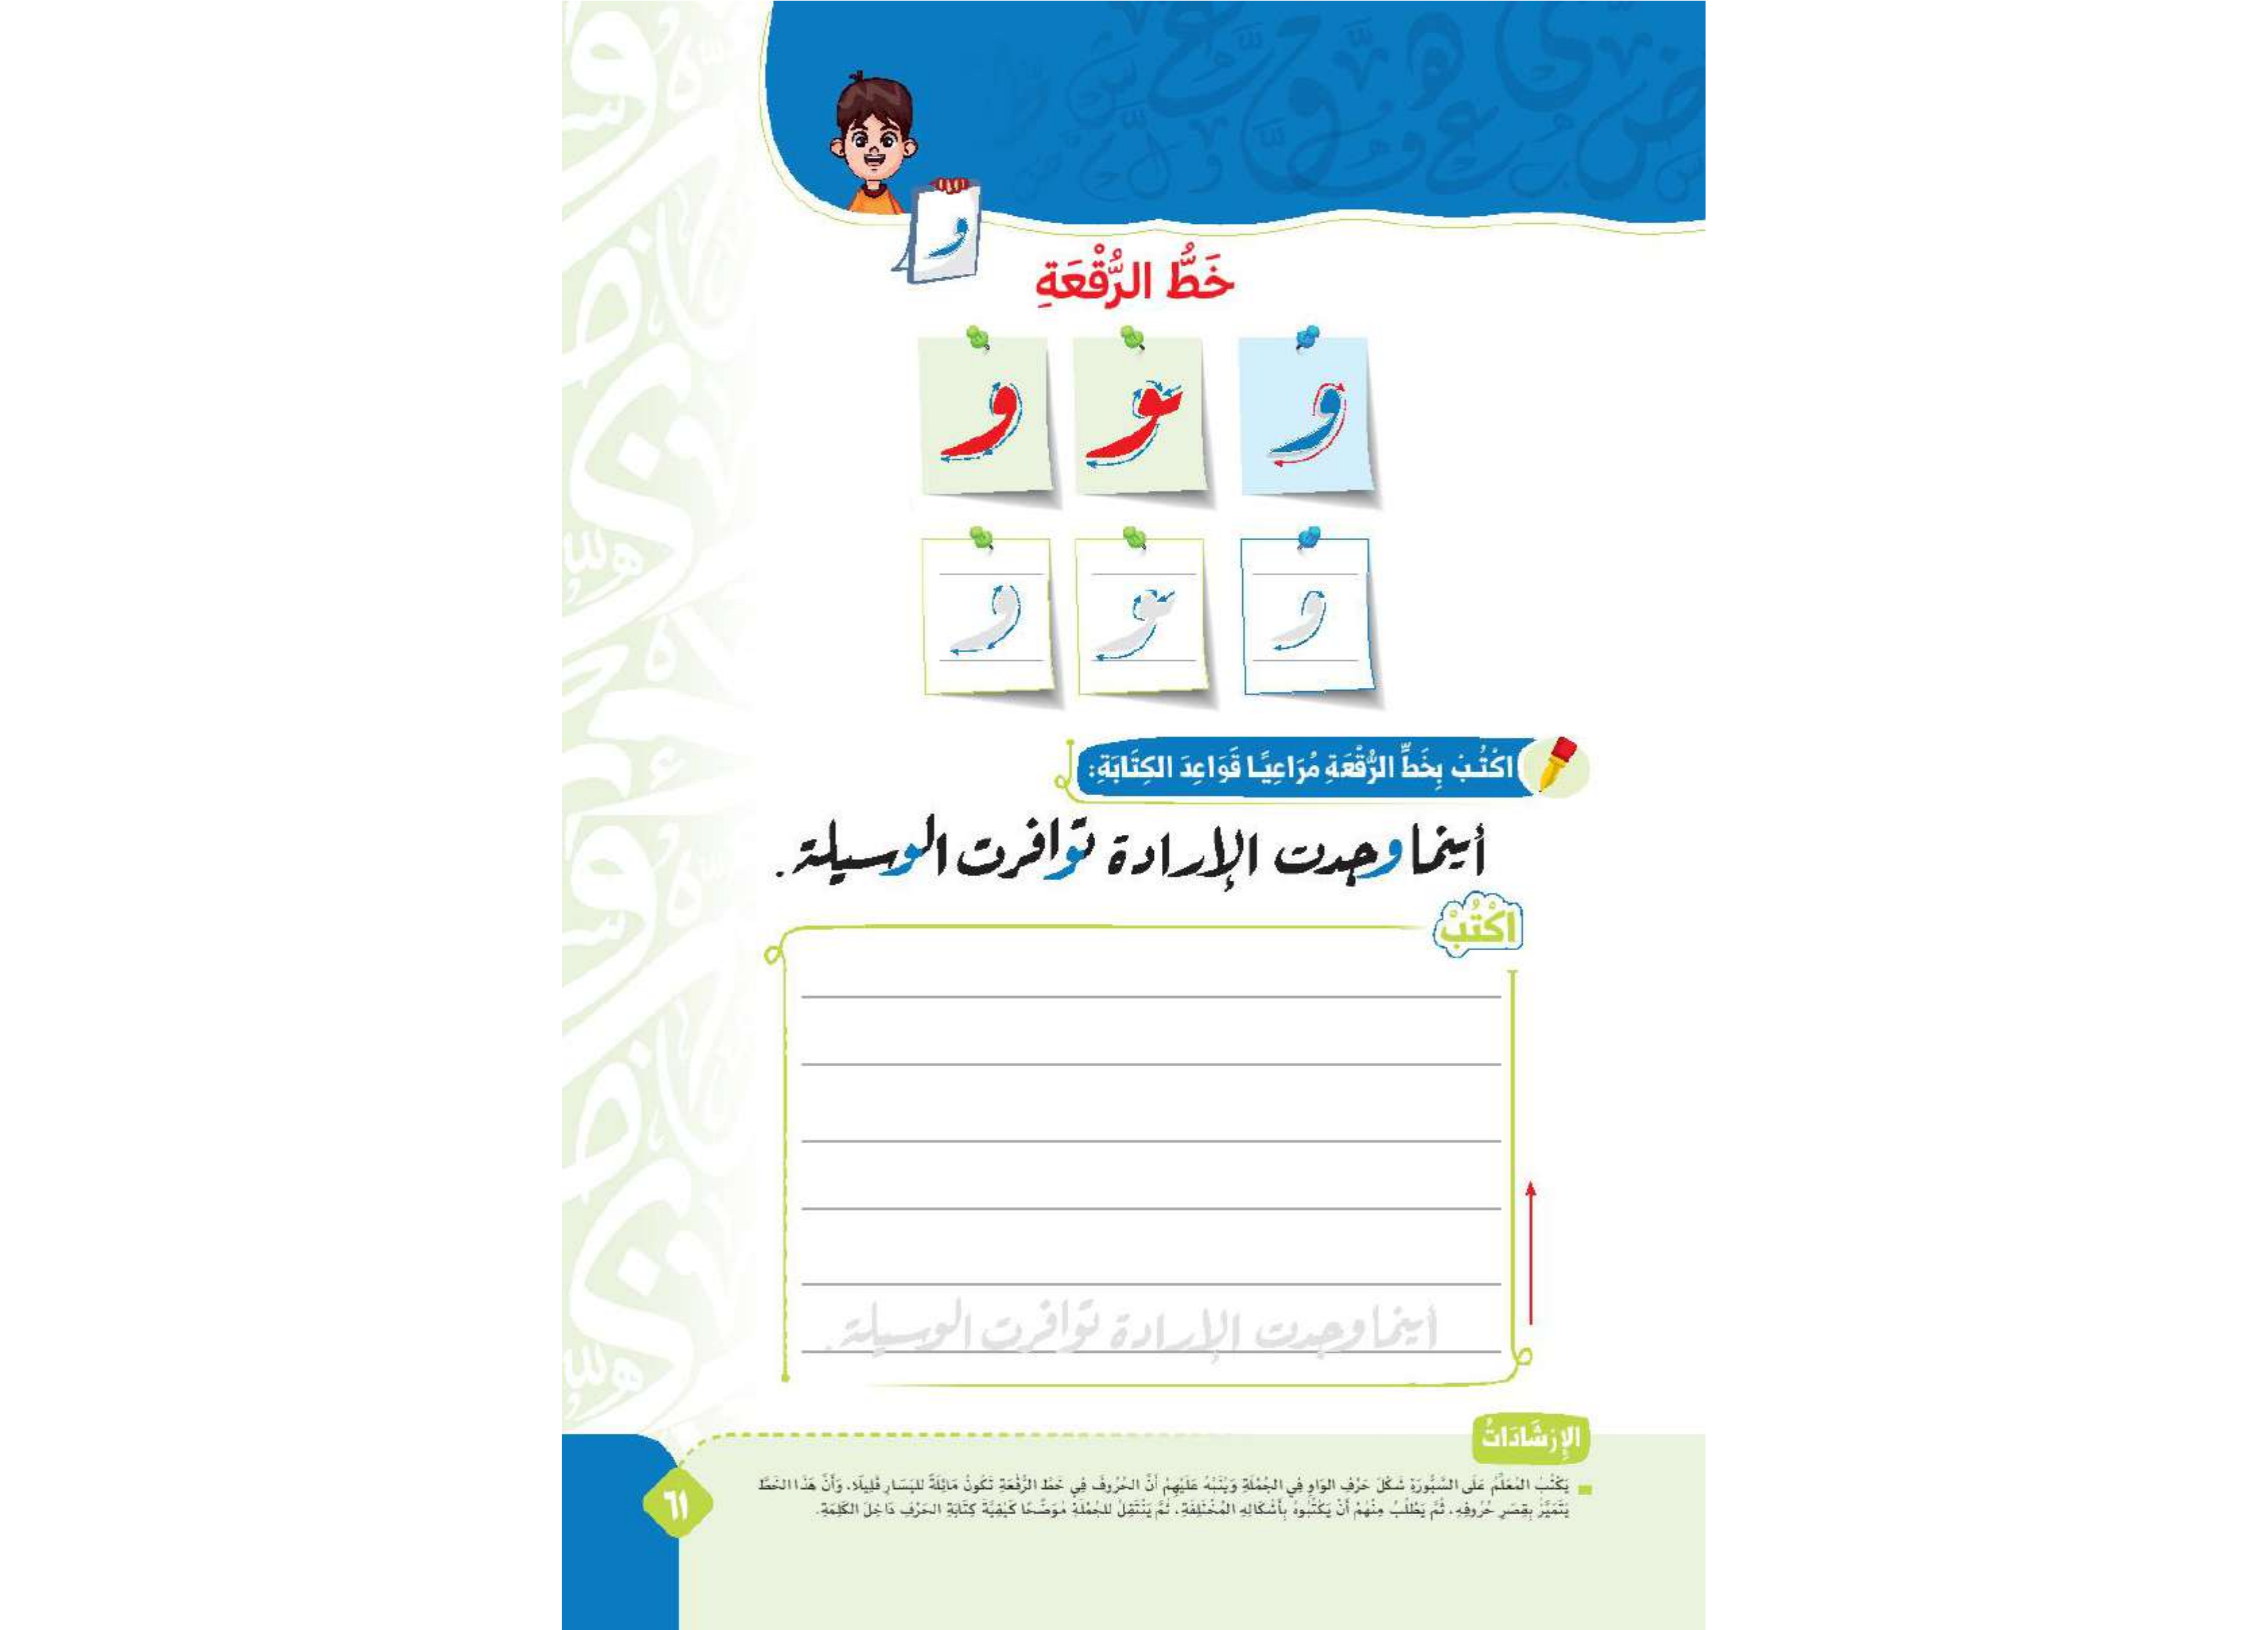 و
خَطُّ الرُّقْعَةِ
و ـو و
و ـو و
اكْتُبْ بِخَطِّ الرُّقْعَةِ مُرَاعِيًا قَوَاعِدَ الكِتَابَةِ:
أينما وجدت الإرادة توافرت الوسيلة.
اكْتُبْ
أينما وجدت الإرادة توافرت الوسيلة.
الإِرْشَادَاتُ
يَكْتُبُ المُعَلِّمُ عَلَى السَّبُّورَةِ شَكْلَ حَرْفِ الوَاوِ فِي الجُمْلَةِ وَيُنَبِّهُ عَلَيْهِمْ أَنَّ الحُرُوفَ فِي خَطِّ الرُّقْعَةِ تَكُونُ مَائِلَةً لليَسَارِ قَلِيلًا، وَأَنَّ هَذَا الخَطَّ
يَتَمَيَّزُ بِقِصَرِ حُرُوفِهِ، ثُمَّ يَطْلُبُ مِنْهُمْ أَنْ يَكْتُبُوهُ بِأَشْكَالِهِ المُخْتَلِفَةِ، ثُمَّ يَنْتَقِلُ للجُمْلَةِ مُوَضِّحًا كَيْفِيَّةَ كِتَابَةِ الحَرْفِ دَاخِلَ الكَلِمَةِ.
٦١